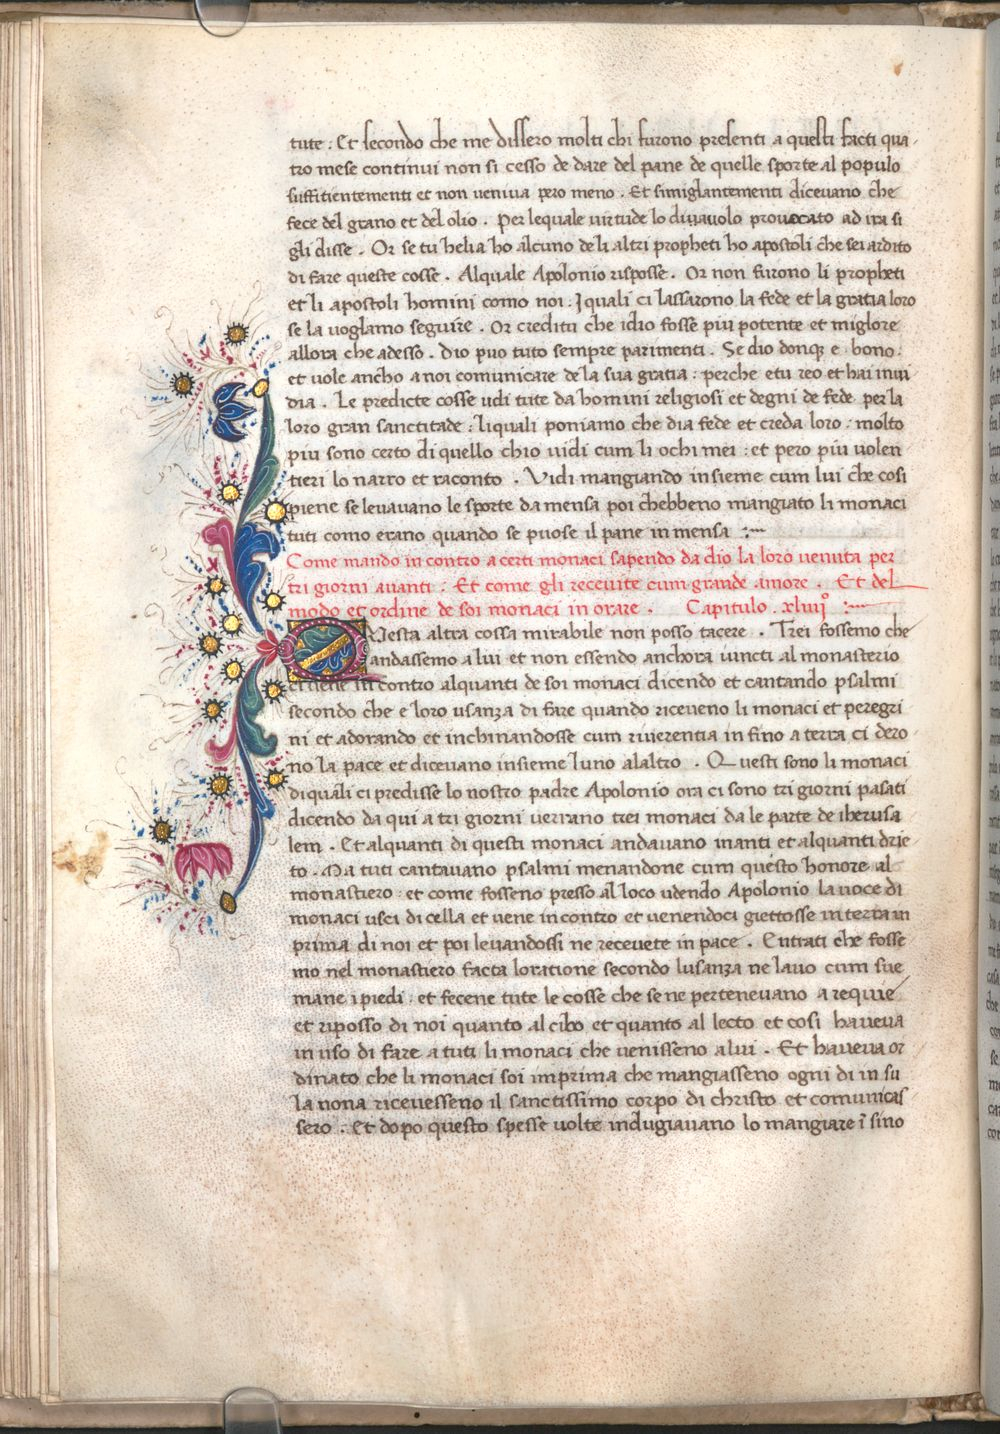 tute : Et secondo che me dissero molti chi furono presenti a questi facti qua
tro mese continui non si cesso de dare del pane de quelle sporte al populo
suffitientementi et non veniva pero meno . Et simiglantementi dicevano che
fece del grano et del olio . Per lequale virtude lo diuavolo provocato ad ira si
gli disse . Or se tu helia ho alcuno deli altri propheti ho apostoli che sei ardito
di fare queste cosse . Alquale Apolonio risposse . Or non furono li propheti
et li apostoli homini como noi : Iquali ci lassarono la fede et la gratia loro
se la uoglamo seguire . Or creditu che idio fosse piu potente et miglore
allora che adesso . dio puo tuto sempre parimenti . Se dio donque e bono
et uole ancho a noi comunicare de la sua gratia : perche etu reo et hai inui
dia . Le predicte cosse udi tute da homini religiosi et degni de fede per la
loro gran sanctitade : liquali poniamo che dia fede et creda loro : molto
piu sono certo di quello chio uidi cum li ochi mei : et pero piu uolen
tieri lo narro et raconto . Vidi mangiando insieme cum lui che cosi
piene se levavano le sporte da mensa poi chebbeno mangiato li monaci
tuti como erano quando se puose il pane in mensa :~
Come mando in contro a certi monaci sapendo da dio la loro venuta per
tri giorni avanti : Et come gli recevite cum grande amore . Et del
modo et ordine de soi monaci in orare . Capitulo . xluiiº :~
Questa altra cossa mirabile non posso tacere . Trei fossemo che
andassemo a lui et non essendo anchora iuncti al monasterio
ci vene in contro alquanti de soi monaci dicendo et cantando psalmi
secondo che e loro usanza di fare quando riceveno li monaci et peregri
ni et adorando et inchinandosse cum riverentia in fino a terra ci dero
no la pace et dicevano insieme luno alaltro . Questi sono li monaci
di quali ci predisse lo nostro padre Apolonio ora ci sono tri giorni pasati
dicendo da qui a tri giorni verrano trei monaci da le parte de iherusa
lem . Et alquanti di questi monaci andavano inanti et alquanti drie
to . Ma tuti cantavano psalmi menandone cum questo honore al
monastiero : et come fosseno presso al loco udendo Apolonio la uoce di
monaci usci di cella et vene in contro et venendoci giettosse in terra in
prima di noi et poi levandossi ne recevete in pace . Entrati che fosse
mo nel monastiero facta loratione secondo lusanza ne lavo cum sue
mane i piedi : et fecene tute le cosse che se ne pertenevano a requie
et riposso di noi quanto al cibo et quanto al lecto et cosi haveva
in uso di fare a tuti li monaci che venisseno a lui . Et haveva or
dinato che li monaci soi imprima che mangiasseno ogni di in su
la nona ricevesseno il sanctissimo corpo di christo et comunicas
sero : Et dopo questo spesse uolte indugiavano lo mangiare ĩ sino